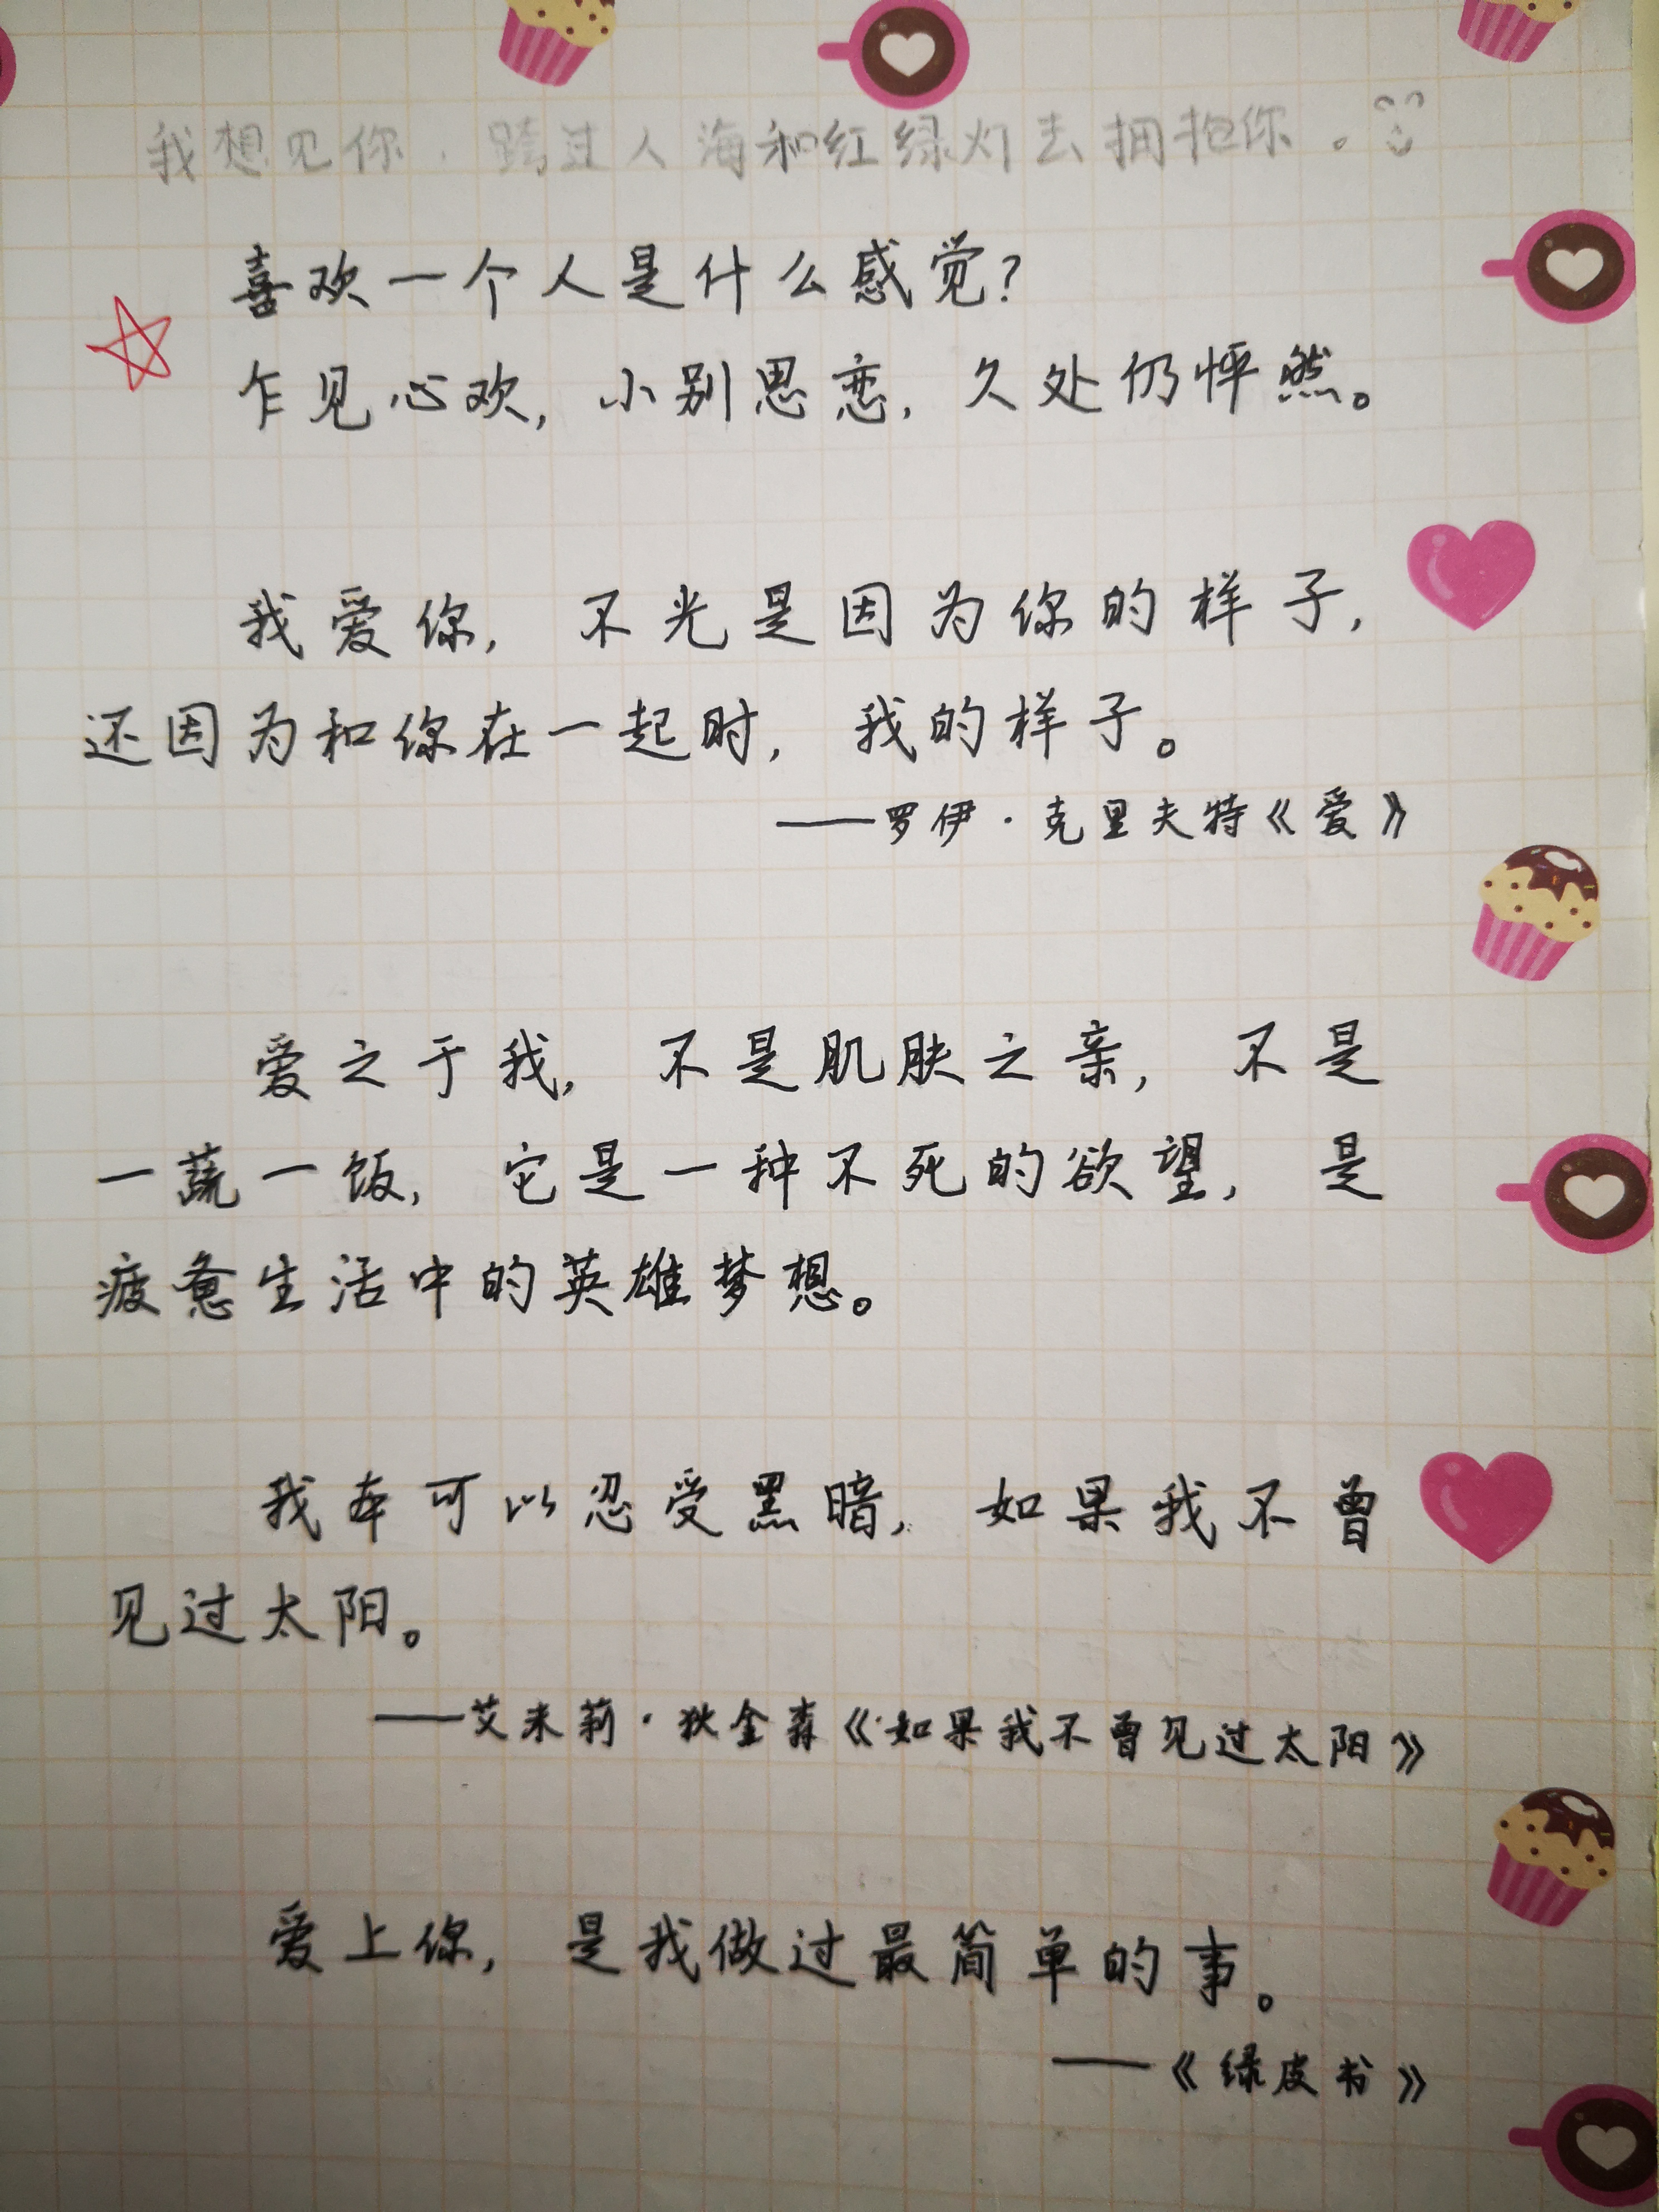 我想见你，跨过人海和红绿灯去拥抱你。
喜欢一个人是什么感觉？
乍见心欢，小别思恋，久处仍怦然。
我爱你，不光是因为你的样子，
还因为和你在一起时，我的样子。
——罗伊·克里夫特《爱》
爱之于我，不是肌肤之亲，不是
一蔬一饭，它是一种不死的欲望，是
疲惫生活中的英雄梦想。
我本可以忍受黑暗，如果我不曾
见过太阳。
——艾米莉·狄金森《如果我不曾见过太阳》
爱上你，是我做过最简单的事。
——《绿皮书》